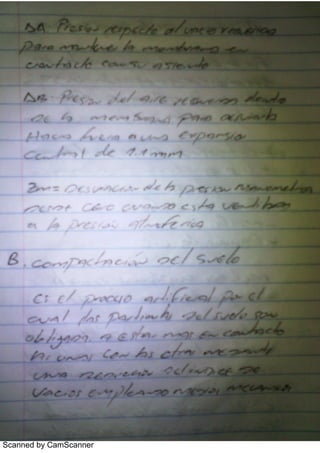 ΔA. Presion respecto al vacio requerida
para mantener la membrana en
contacto con su asiento
ΔB. Presion del aire requerida dentro
de la membrana para
Hacia fuera a una expansion
central de 1.1 mm
Zm = Desviacion de la presion manometrica
cero cuando esta
a la presion atmosferica
B. compactacion del suelo
Es el proceso artificial por el
cual las particulas del suelo son
obligadas a estar mas en contacto
ni unas con las otras mediante
una reduccion del indice de
vacios empleando medios mecanicos
Scanned by CamScanner